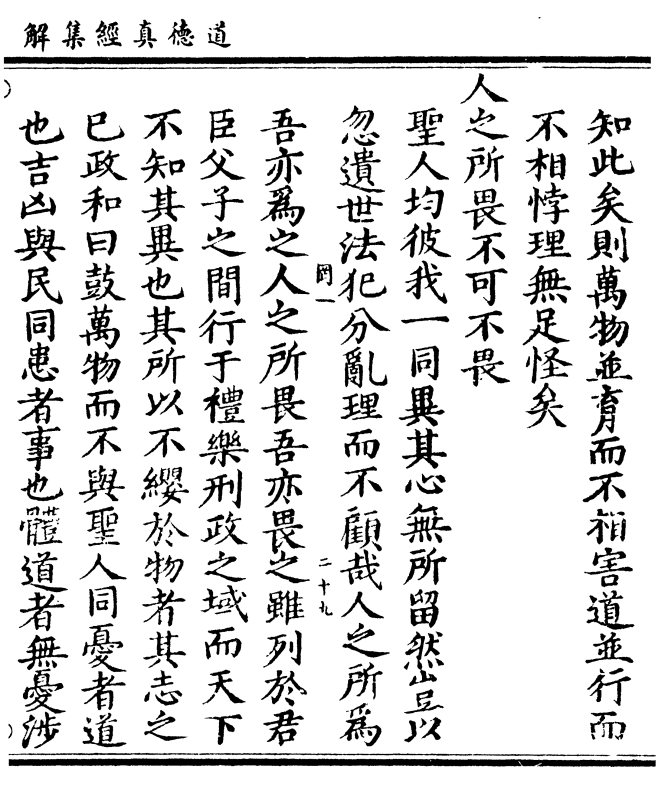 道德真經集解
知此矣則萬物並育而不相害道並行而
不相悖理無足怪矣
人之所畏不可不畏
聖人均彼我一同異其心無所留然豈以
忽遺世法犯分亂理而不顧哉人之所爲
罔一
二十九
吾亦爲之人之所畏吾亦畏之雖列於君
臣父子之間行于禮樂刑政之域而天下
不知其異也其所以不纓於物者其志之
已政和曰鼓萬物而不與聖人同憂者道
也吉凶與民同患者事也體道者無憂涉